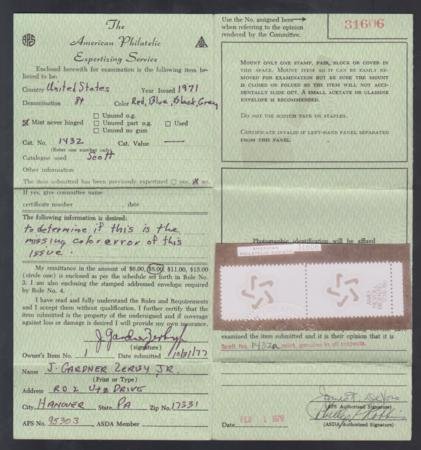 The
American Philatelic
Expertizing Service
APS
Enclosed herewith for examination is the following item believed to be:
Country United States Year Issued 1971
Denomination 8¢ Color Red, Blue, Black, Gray
Mint never hinged
Unused o.g.
Unused part o.g. Used
Unused no gum
Cat. No. 1432 Cat. Value
(Enter one number only)
Catalogue used Scott
Other information
The item submitted has been previously expertized yes, no.
If yes, give committee name
certificate number date
The following information is desired:
to determine if this is the
missing color error of this
issue.
My remittance in the amount of $6.00, $8.00, $11.00, $15.00
(circle one) is enclosed as per the schedule set forth in Rule No.
3. I am also enclosing the stamped addressed envelope required
by Rule No. 4.
I have read and fully understand the Rules and Requirements
and I accept them without qualification. I further certify that the
item submitted is the property of the undersigned and if coverage
against loss or damage is desired I will provide my own insurance.
J. Gardner Zerby Jr
(signature)
Owner's Item No. Date submitted
Name J. GARDNER ZERBY, JR.
(Print or Type)
Address RD 2 UTZ DRIVE
City HANOVER State PA Zip No. 17331
APS No. 95303 ASDA Member
Use the No. assigned here
when referring to the opinion
rendered by the Committee.
31606
MOUNT ONLY ONE STAMP, PAIR, BLOCK OR COVER IN
THIS SPACE. MOUNT ITEM SO IT CAN BE EASILY REMOVED
FOR EXAMINATION BUT BE SURE THE MOUNT
IS CLOSED OR FOLDED SO THE ITEM WILL NOT ACCIDENTALLY
SLIDE OUT. A SMALL ACETATE OR GLASSINE
ENVELOPE IS RECOMMENDED.
DO NOT USE SCOTCH TAPE OR STAPLES.
CERTIFICATE INVALID IF LEFT-HAND PANEL SEPARATED
FROM THIS PANEL.
Photographic identification will be affixed
examined the item submitted and it is their opinion that it is
Scott No. 1432a, mint, genuine in all respects.
(APS Authorized Signature)
(ASDA Authorized Signature)
Date FEB 1 1978